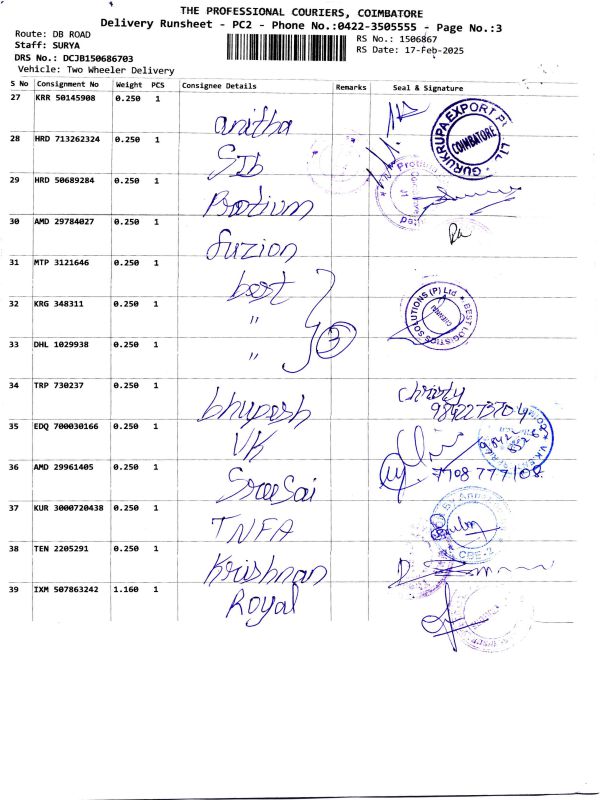 THE PROFESSIONAL COURIERS, COIMBATORE
Delivery Runsheet - PC2 - Phone No.:0422-3505555 - Page No.:3
Route: DB ROAD
RS No.: 1506867
Staff: SURYA
RS Date: 17-Feb-2025
DRS No.: DCJB150686703
Vehicle: Two Wheeler Delivery
S No Consignment No Weight PCS Consignee Details Remarks Seal & Signature
27 KRR 50145908 0.250 1 anitha
GURUKRUPA EXPORT
COIMBATORE
28 HRD 713262324 0.250 1 SIb
29 HRD 50689284 0.250 1 Protium
30 AMD 29784027 0.250 1 fuzion
31 MTP 3121646 0.250 1 best
32 KRG 348311 0.250 1 "
33 DHL 1029938 0.250 1 "
3
BEST LOGISTICS SOLUTIONS (P) Ltd
CHENNAI
34 TRP 730237 0.250 1 bhupesh
Christy
35 EDQ 700030166 0.250 1 VK
36 AMD 29961405 0.250 1 Sree Sai
7708 777108
37 KUR 3000720438 0.250 1 TNFA
CBE-2
38 TEN 2205291 0.250 1 Krishnan
39 IXM 507863242 1.160 1 Royal